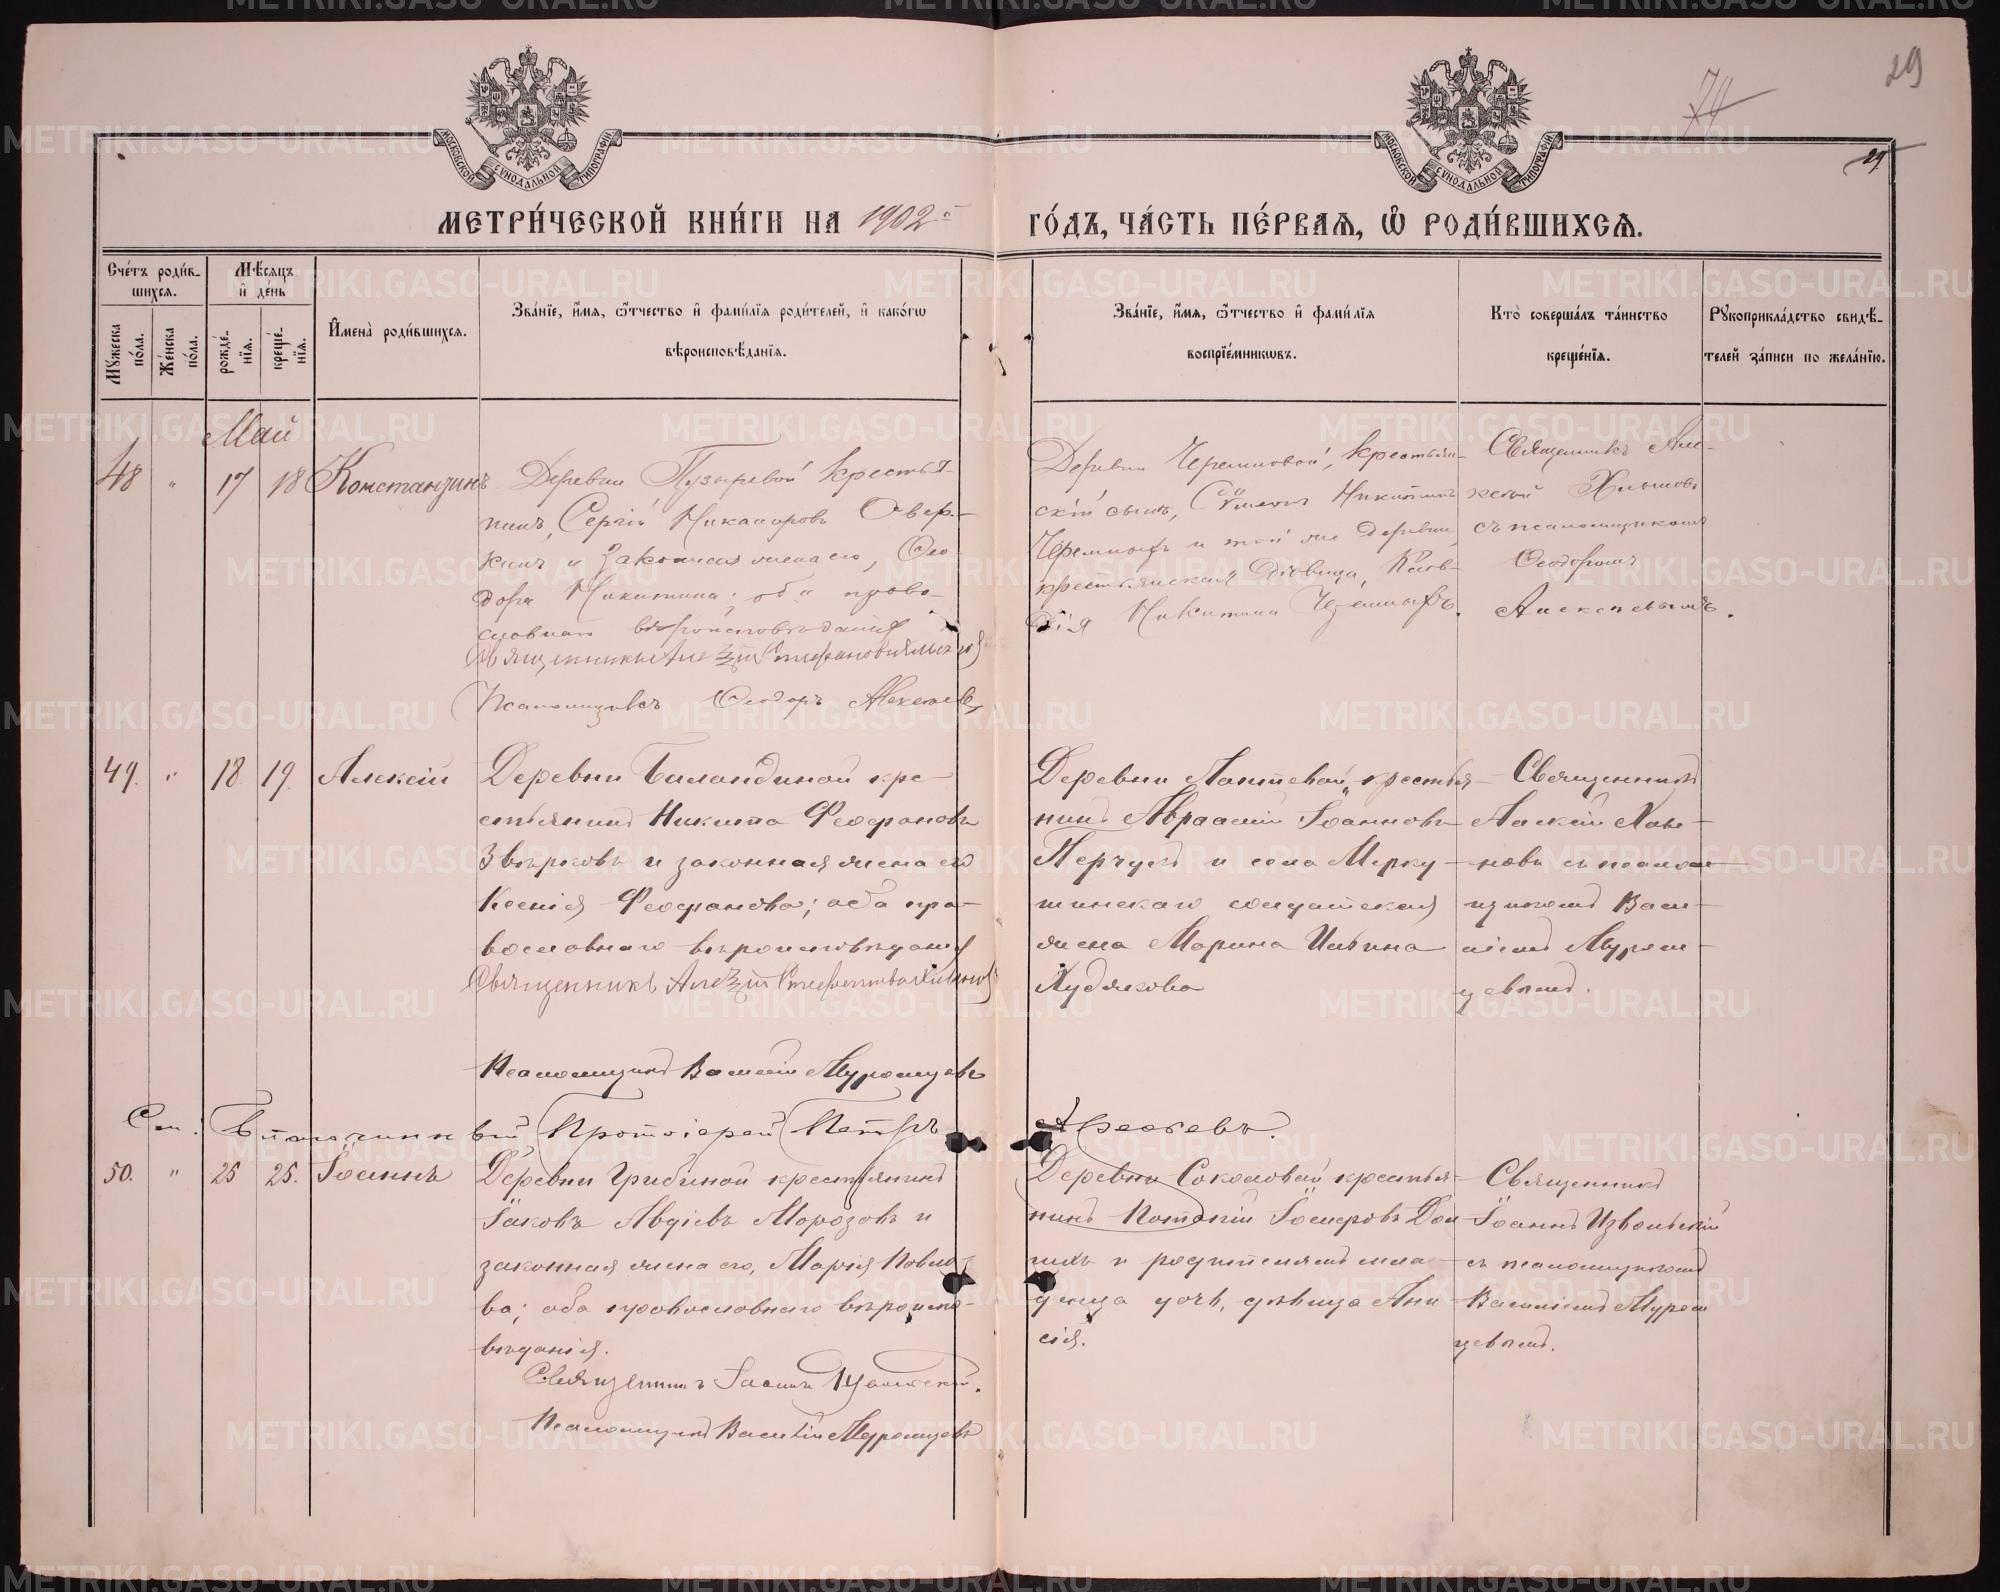 29
74
29
МОСКОВСКОЙ СѴНОДАЛЬНОЙ ТИПОГРАФІИ
МОСКОВСКОЙ СѴНОДАЛЬНОЙ ТИПОГРАФІИ
МЕТРИ́ЧЕСКОЙ КНИ́ГИ НА 1902 й
ГО́ДЪ, ЧА́СТЬ ПЕ́РВАѦ, Ѽ РОДИ́ВШИХСѦ.
Сче́тъ роди́в-
шихсѧ.
Мꙋжеска по́ла.
Же́нска по́ла.
Мѣ́сѧцъ
и҆ де́нь
рожде́-
нїѧ.
креще́-
нїѧ.
И҆мена̀ роди́вшихсѧ.
Зва́нїе, и҆́мѧ, ѻ҆́тчество и҆ фами́лїѧ роди́телей, и҆ како́гѡ
вѣроисповѣ́данїѧ.
Зва́нїе, и҆́мѧ, ѻ҆́тчество и҆ фами́лїѧ
воспрїе́мникѡвъ.
Кто̀ соверша́лъ та́инство
креще́нїѧ.
Рꙋкоприкла́дство свидѣ́-
телей за́писи по жела́нїю.
Май
48 " 17 18 Константинъ
Деревни Пузыревой крестья-
нинъ, Сергій Никаноровъ Овер-
кинъ и законная жена его, Ѳео-
дора Никитина; оба право-
славнаго вѣроисповѣданія
Священникъ Алексій Стефановъ Хлыновъ
Псаломщикъ Ѳеодоръ Алексѣевъ
Деревни Черемновой, крестьян-
скій сынъ, Сѵмеонъ Никитинъ
Черемныхъ и той же деревни,
крестьянская дѣвица, Клав-
дія Никитина Черемныхъ.
Священникъ Але-
ксій Хлыновъ
съ псаломщикомъ
Ѳеодоромъ
Алексѣевымъ.
49. " 18 19. Алексій
Деревни Баландиной кре-
стьянинъ Никита Феофановъ
Звѣревъ и законная жена его
Ксенія Феофанова; оба пра-
вославнаго вѣроисповѣданія
Священникъ Алексій Стефановъ Хлыновъ
Псаломщикъ Василій Муромцевъ
Деревни Лаптевой крестья-
нинъ Авраамій Іоанновъ
и села Мерку-
шинскаго солдатская
жена Марина Ильина
Худякова
Священникъ
Алексій Хлы-
новъ съ псалом-
щикомъ Васи-
ліемъ Муром-
цевымъ.
Благочинный Протоіерей Петръ
Арефьевъ.
50. " 25 25. Іоаннъ
Деревни Грибиной крестьянинъ
Іаковъ Авдіевъ Морозовъ и
законная жена его, Марія Павло-
ва; оба православнаго вѣроиспо-
вѣданія.
Священникъ Іоаннъ Извольскій.
Псаломщикъ Василій Муромцевъ
Деревни Соколовой крестья-
нинъ
и родителямъ мла-
денца дочь, дѣвица Ани-
сія.
Священникъ
Іоаннъ Извольскій
съ псаломщикомъ
Василіемъ Муром
цевымъ.